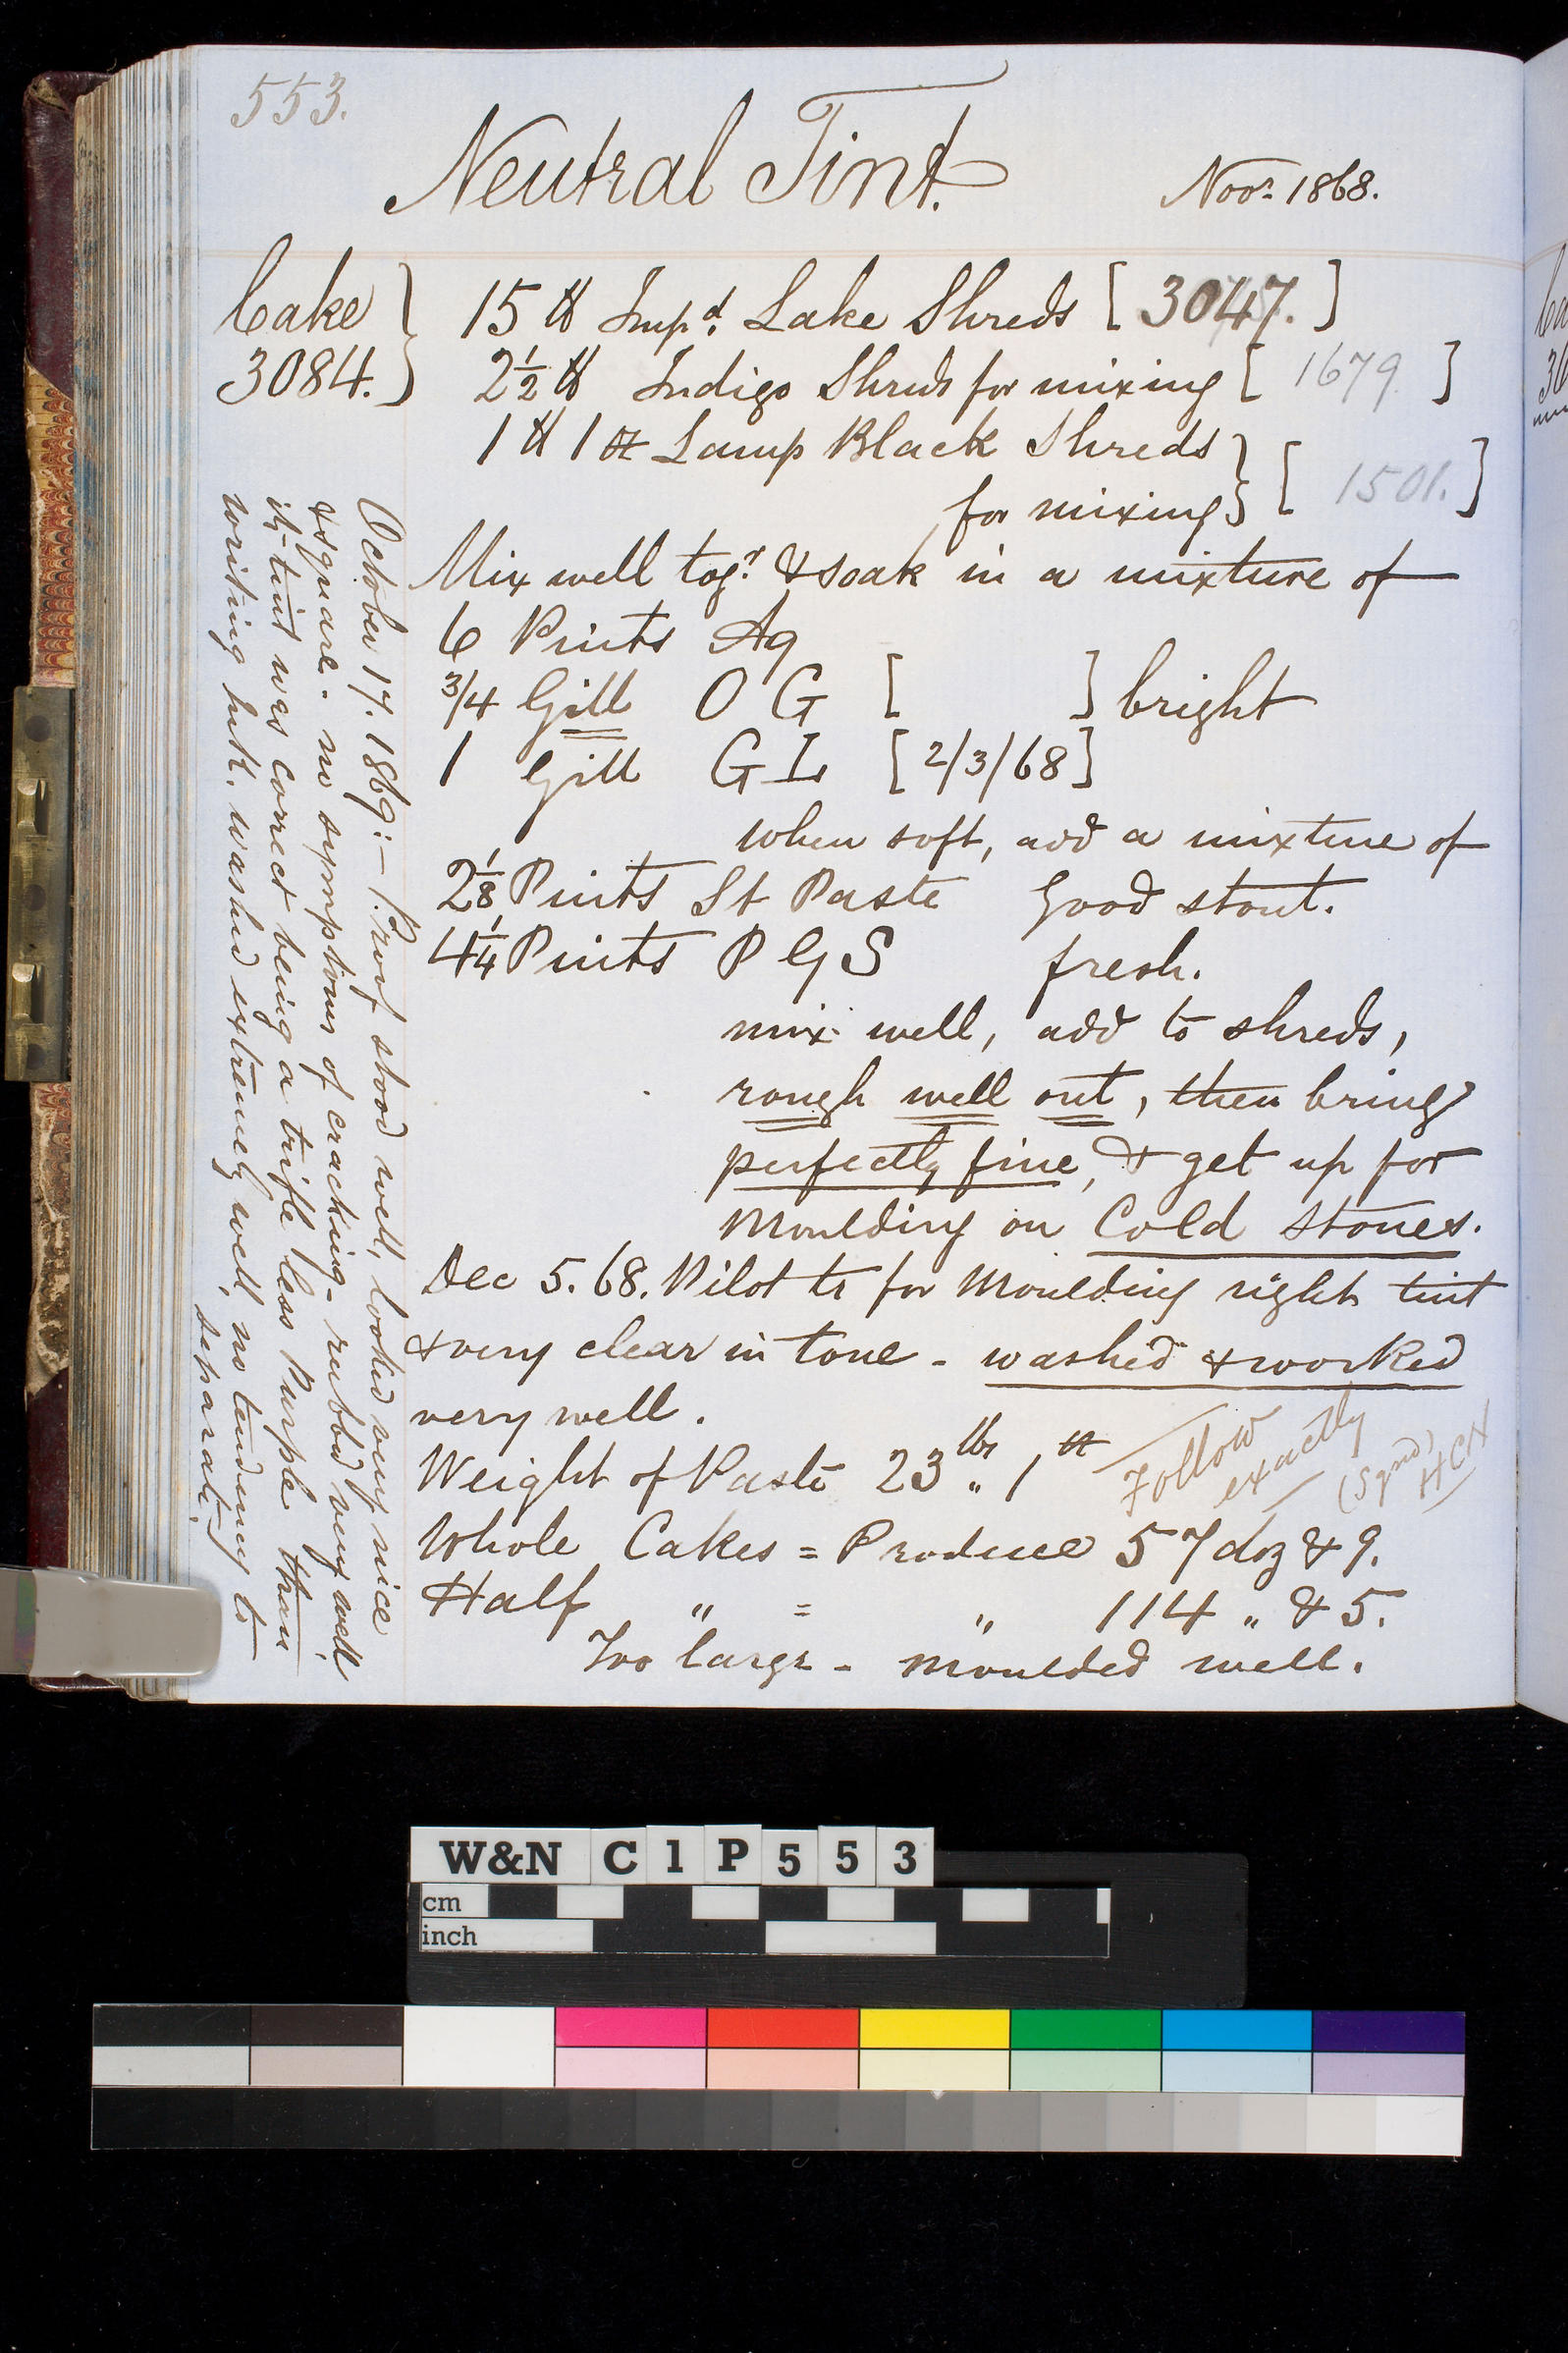 553.
Neutral Tint.
Novr 1868.
Cake } 15 lb Impd. Lake Shreds [ 3047. ]
3084. } 2½ lb Indigo Shreds for mixing [ 1679 ]
1 lb 1 oz Lamp Black Shreds }
for mixing } [ 1501. ]
Mix well togr. & soak in a mixture of
6 Pints Aq
3/4 Gill O G [ ] bright
1 Gill G L [ 2/3/68 ]
when soft, add a mixture of
2⅛ Pints St Paste Good stout.
4¼ Pints P G S fresh.
mix well, add to shreds,
rough well out, then bring
perfectly fine, & get up for
moulding on Cold Stones.
Dec 5. 68. Pilot tr for Moulding right tint
& very clear in tone - washed & worked
very well.
Weight of Paste 23 lbs „ 1 oz
Follow
exactly
(Sgnd)
HCN
Whole Cakes = Produce 57 doz & 9.
Half „ = „ 114 „ & 5.
Too large - moulded well.
October 17. 1869:- Proof stood well, looked very nice
& square - no symptoms of cracking - rubbed very well,
its tint was correct being a trifle less Purple than
writing Ink. washed extremely well, no tendency to
separate.
Ca
36
W&N C 1 P 5 5 3
cm
inch